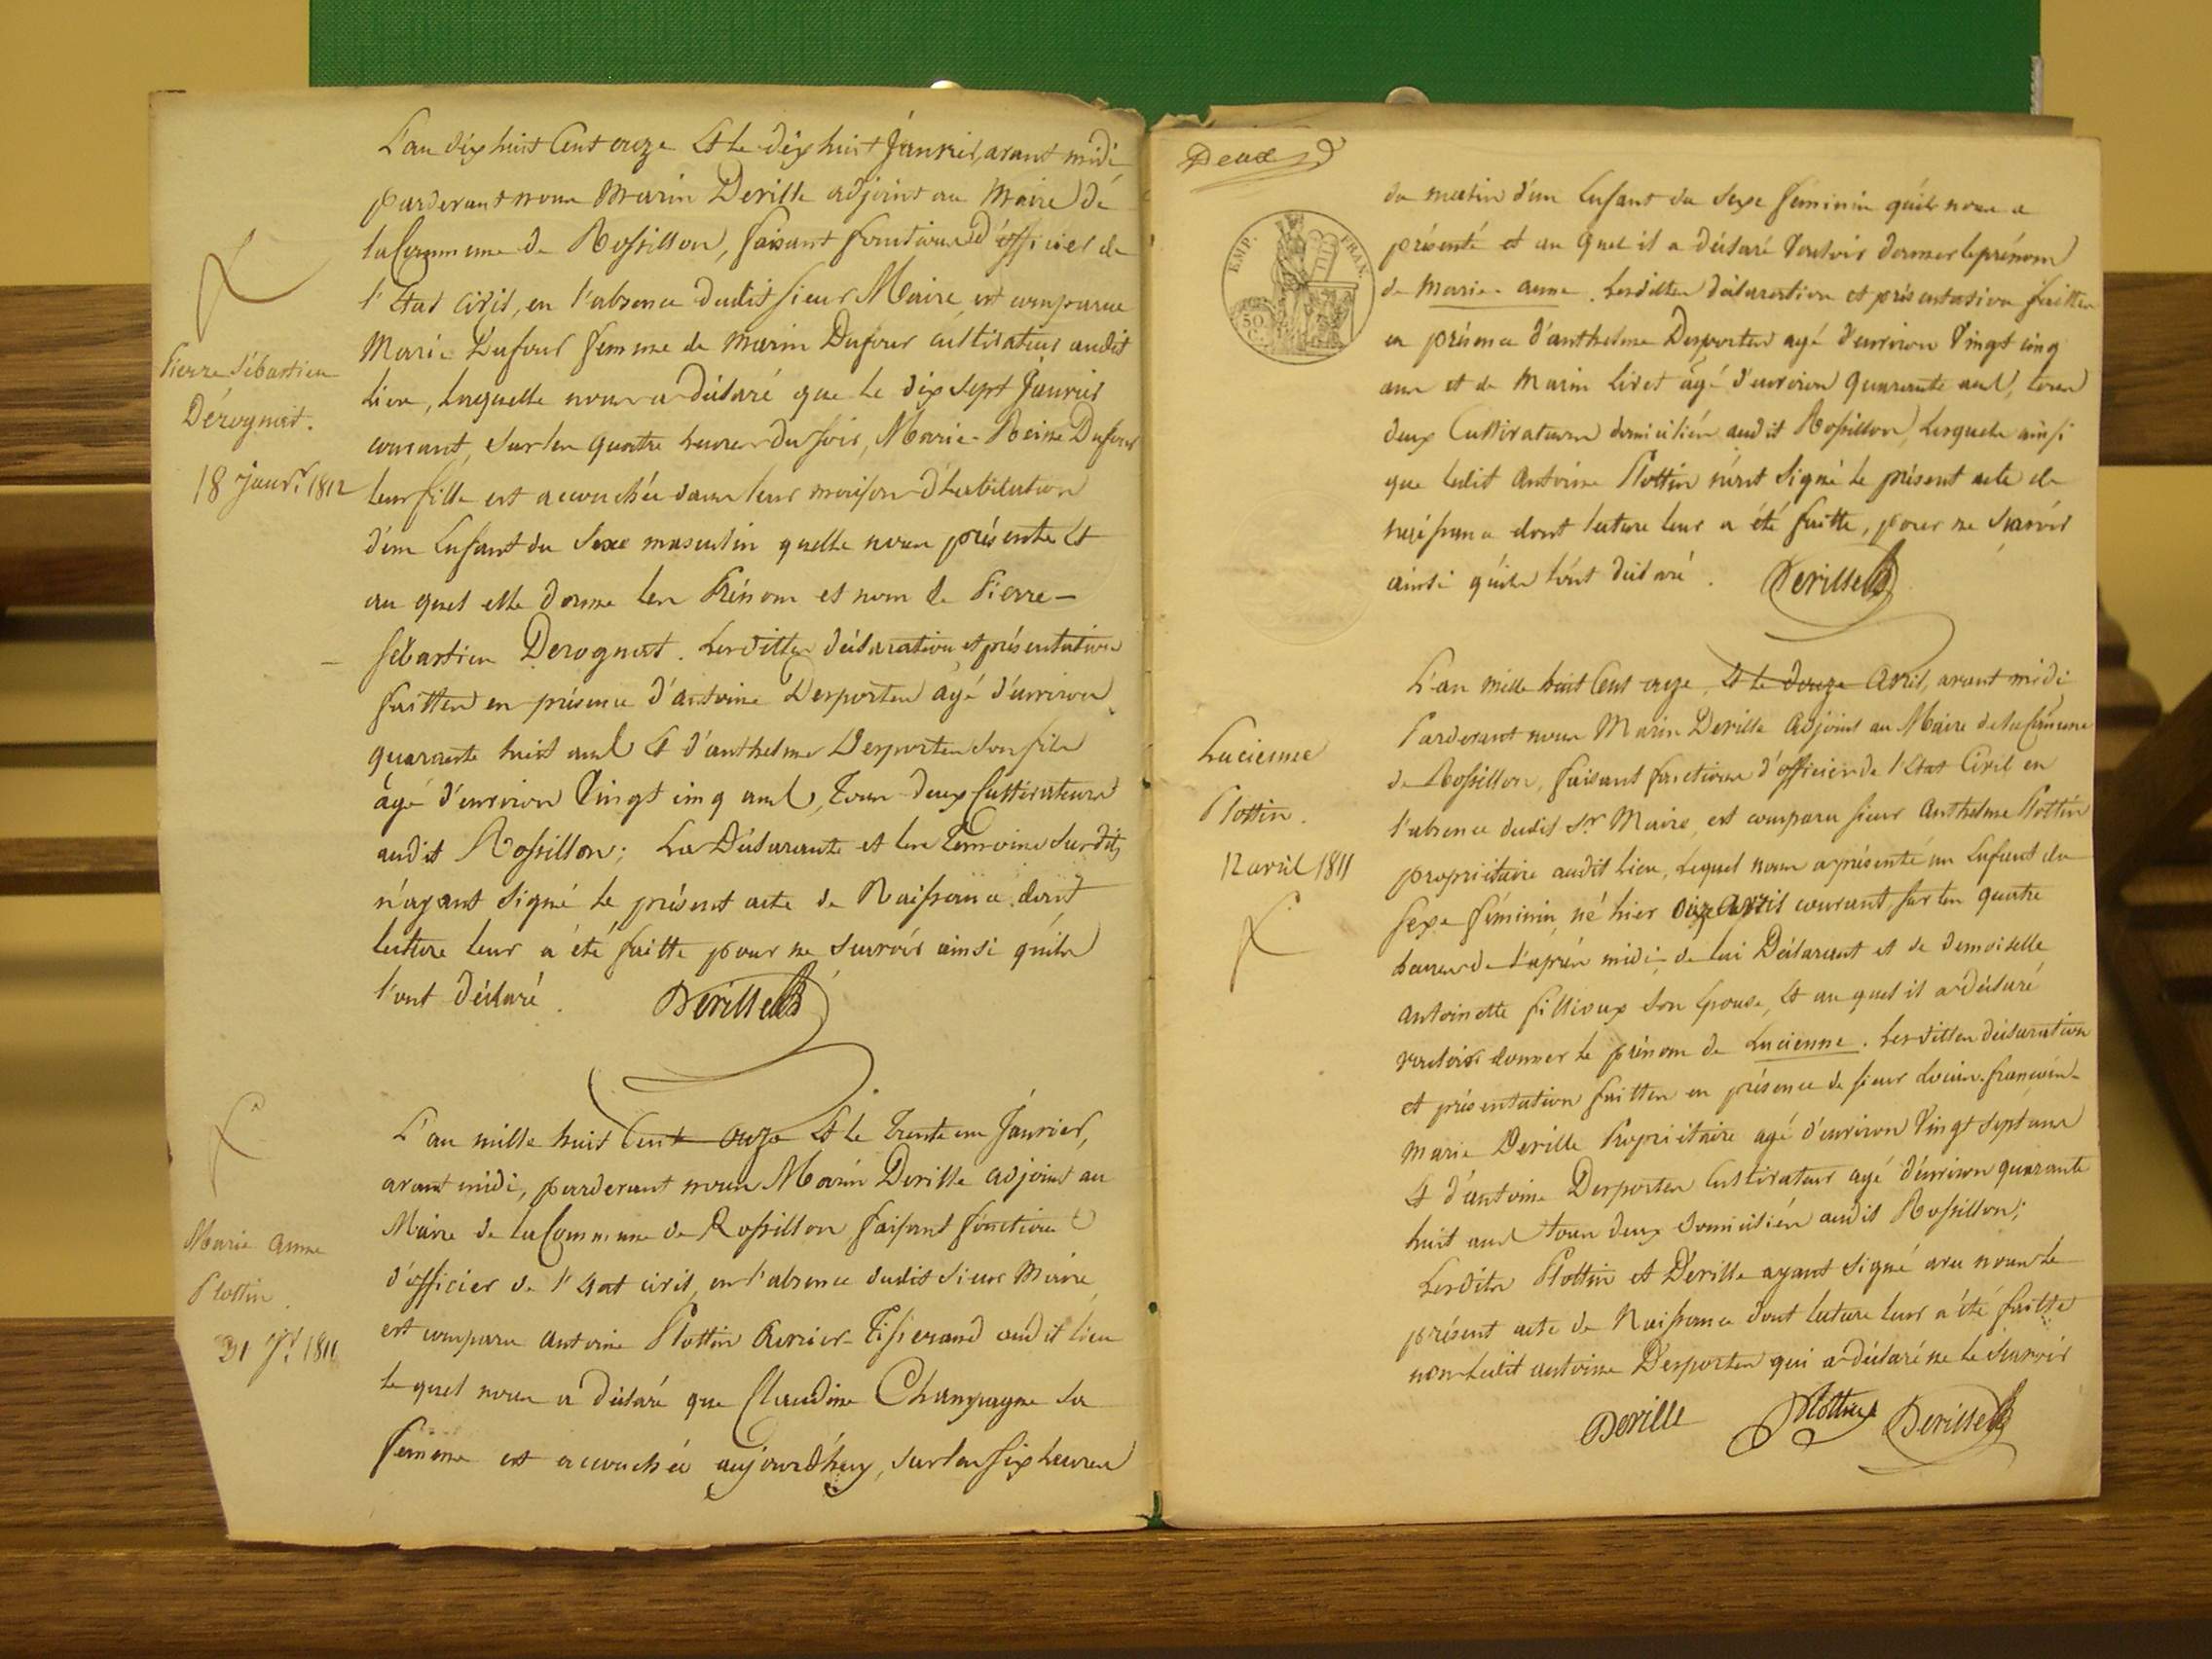 L'an dix huit Cent onze Et le dix huit Janvier, avant midi
pardevant nous Marin Deville adjoint au Maire de
la Commune de Rossillon, faisant fonctions d'officier de
l'Etat Civil, en l'absence dudit sieur Maire, est comparue
Marie Dufour femme de Marin Dufour cultivateur audit
lieu, laquelle nous a déclaré que le dix sept Janvier
courant, sur les quatre heures du soir, Marie-Reine Dufour
leur fille est accouchée dans leur maison d'habitation
d'un Enfant du Sexe masculin qu'elle nous présente Et
au quel elle donne les Prénom et nom de Pierre-
Sébastien Derognat. Lesdittes déclaration et présentation
faittes en présence d'antoine Desportes agé d'environ
quarante huit ans Et d'anthelme Desportes son fils
agé d'environ Vingt cinq ans, tous deux Cultivateurs
audit Rossillon; La Déclarante et les témoins susdits
n'ayant signé le présent acte de Naissance dont
lecture leur a été faitte pour ne savoir ainsi qu'ils
l'ont déclaré.
Deville
Pierre Sébastien
Dérognat.
18 janv.r 1811
L'an mille huit Cent onze Et le trente un Janvier,
avant midi, pardevant nous Marin Deville adjoint au
Maire de la Commune de Rossillon, faisant fonctions
d'officier de l'Etat civil, en l'absence dudit sieur Maire,
est comparu antoine Plottin ouvrier-Tisserand audit lieu
lequel nous a déclaré que Claudine Champagne sa
femme est accouchée aujourd'huy, sur les six heures
Marie anne
Plottin.
31 J.r 1811
Deux
EMP. FRAN.
50
C.
du matin d'un Enfant du sexe féminin qu'il nous a
présenté et au quel il a déclaré Vouloir donner le prénom
de Marie-anne. Lesdittes déclaration et présentation faittes
en présence d'anthelme Desportes agé d'environ Vingt cinq
ans et de Marin Livet agé d'environ quarante ans, tous
deux Cultivateurs domiciliés audit Rossillon, lesquels ainsi
que ledit Antoine Plottin n'ont signé le présent acte de
naissance dont lecture leur a été faitte, pour ne savoir
ainsi qu'ils l'ont déclaré.
Deville
L'an mille huit Cent onze, Et le douze Avril, avant midi
Pardevant nous Marin Deville Adjoint au Maire de la Commune
de Rossillon, faisant fonctions d'officier de l'Etat Civil en
l'absence dudit Sr Maire, est comparu sieur Anthelme Plottin
propriétaire audit lieu, lequel nous a présenté un Enfant du
sexe féminin, né hier onze avril courant, sur les quatre
heures de l'après midi, de lui Déclarant et de demoiselle
Antoinette fillioux son Epouse, Et au quel il a déclaré
vouloir donner le prénom de Lucienne. Lesdittes déclaration
et présentation faittes en présence de sieur Lucien-francois-
Marie Deville Propriétaire agé d'environ Vingt sept ans
Et d'antoine Desportes Cultivateur agé d'environ quarante
huit ans tous deux domiciliés audit Rossillon;
Lesdits Plottin et Deville ayant signé avec nous le
présent acte de Naissance dont lecture leur a été faitte
non ledit antoine Desportes qui a déclaré ne le savoir
Deville Plottin Deville
Lucienne
Plottin.
12 avril 1811